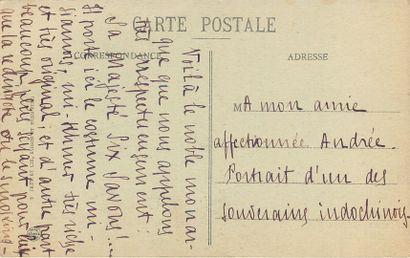 CARTE POSTALE
CORRESPONDANCE
ADRESSE
Voilà le noble monar-
que que nous appelons
irrespectueusement :
Sa Majesté Six Savons !...
Il porte ici le costume mi-
siamois, mi-Khmer très riche
et très original ; et d'autre part
beaucoup plus seyant pour lui
que la redingote ou le smoking -
M A mon amie
affectionnée Andrée
Portrait d'un des
souverains indochinois.